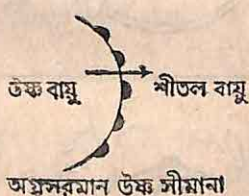 উষ্ণ বায়ু শীতল বায়ু
অগ্রসরমান উষ্ণ সীমানা